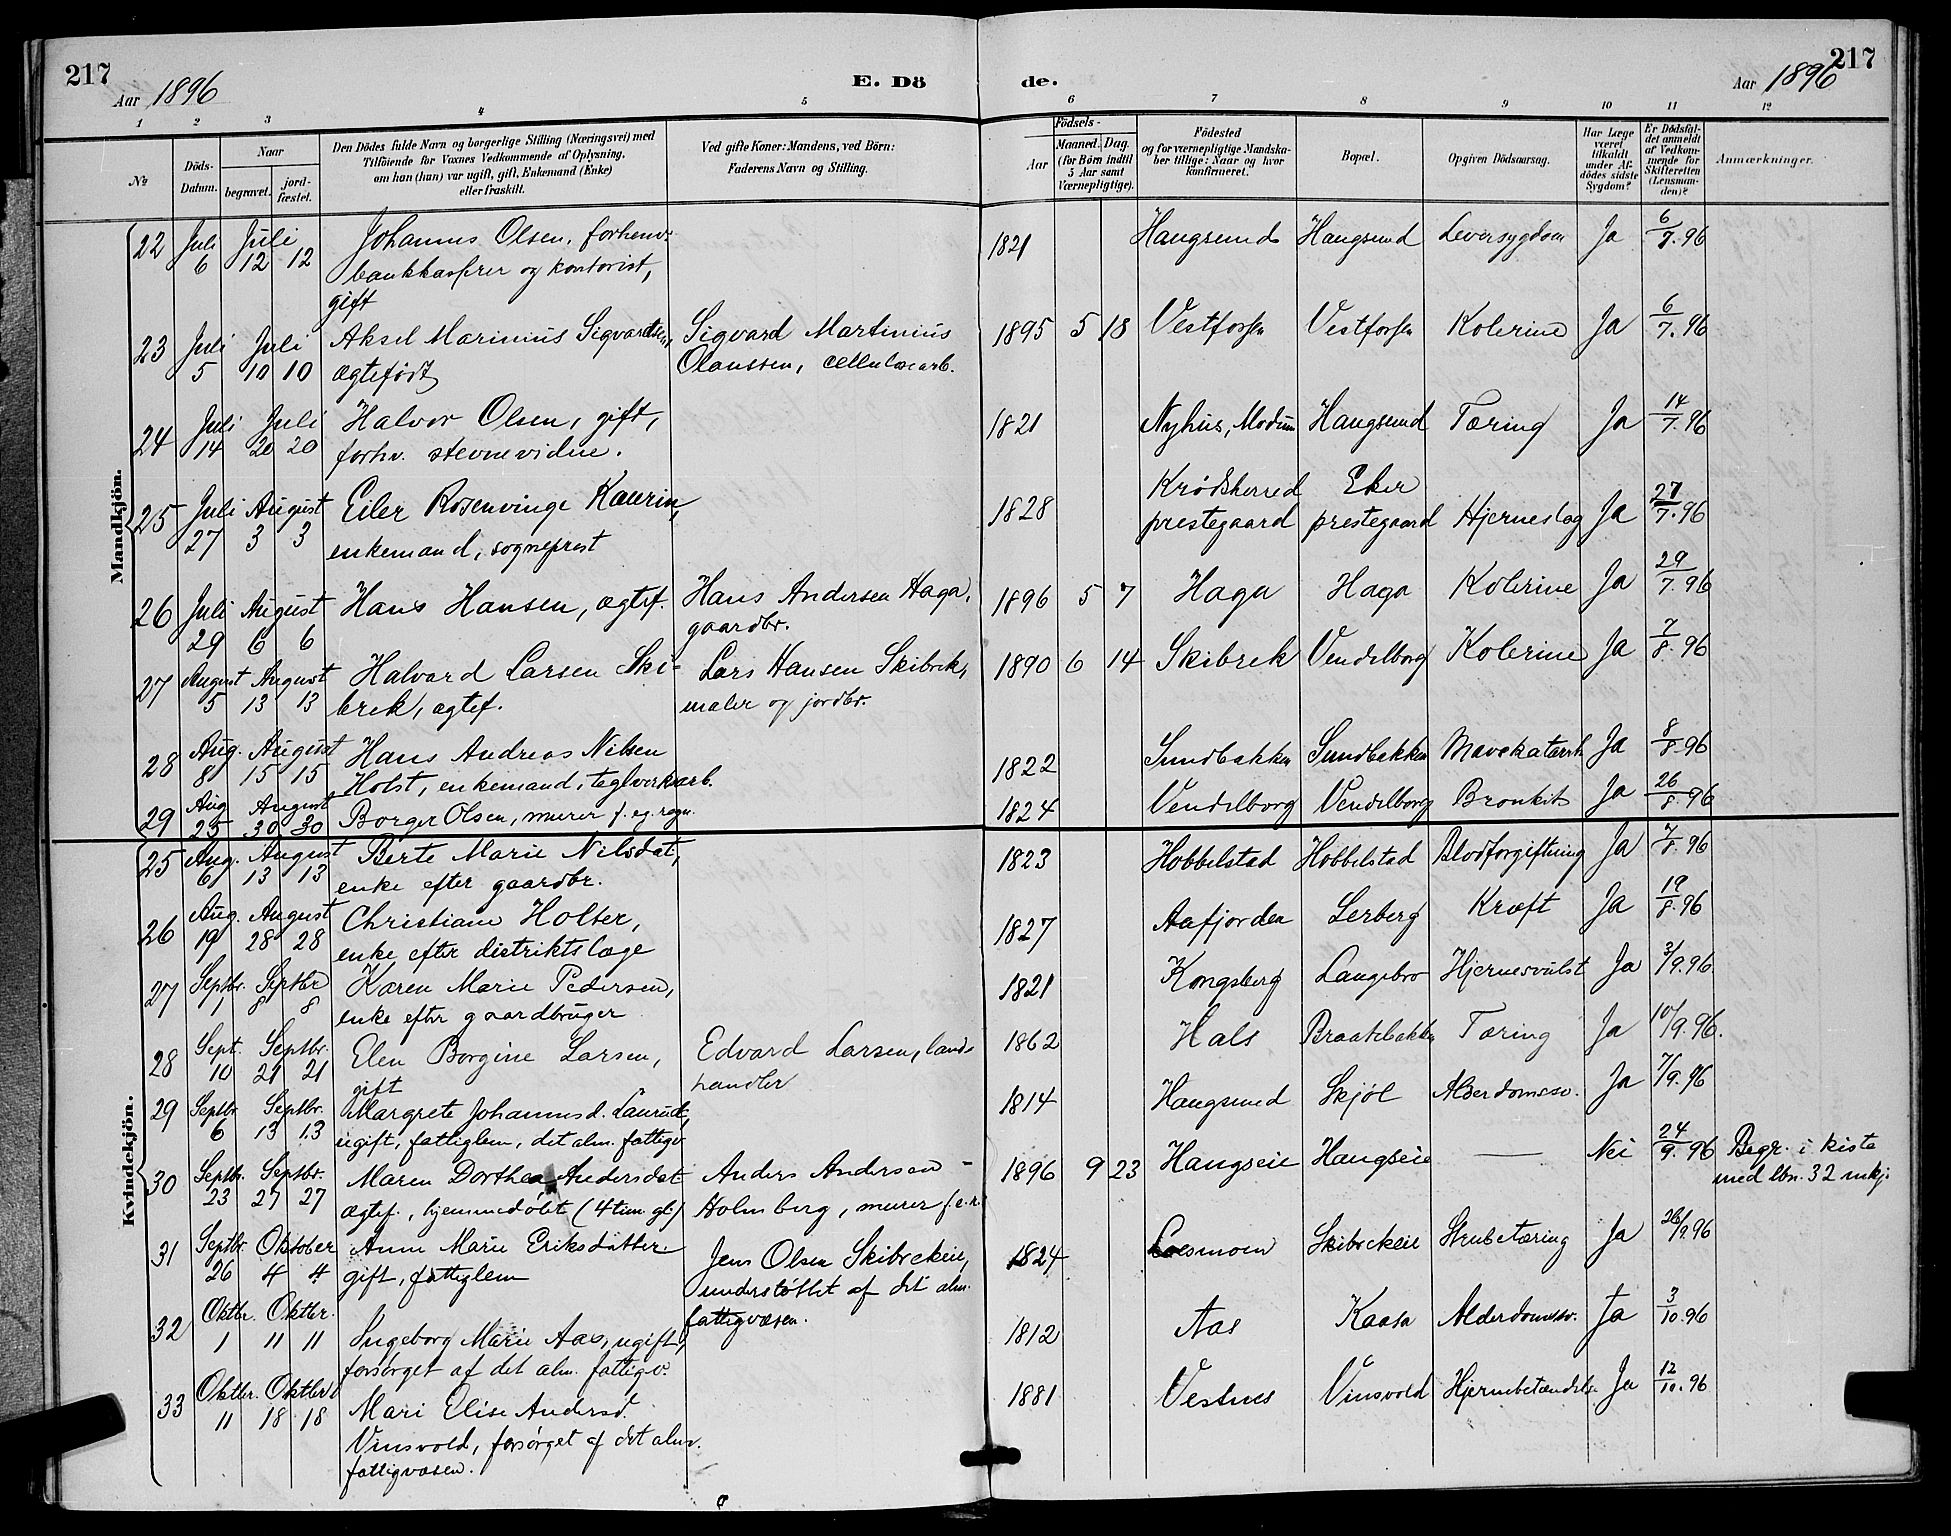 217
Aar 1896
E. Döde.
Aar 1896
217
1 2 3 4 5 6 7 8 9 10 11 12
No
Döds-Datum.
Naar
begravet.
jord-fæstet.
Den Dödes fulde Navn og borgerlige Stilling (Næringsvei) med
Tilföiende for Voxnes Vedkommende af Oplysning,
om han (hun) var ugift, gift, Enkemand (Enke)
eller fraskilt.
Ved gifte Koner: Mandens, ved Börn:
Faderens Navn og Stilling.
Födsels-
Aar
Maaned. Dag.
(for Börn indtil
5 Aar samt
Værnepligtige).
Födested
og for værnepligtige Mandska-
ber tillige: Naar og hvor
konfirmeret.
Bopæl.
Opgiven Dödsaarsag.
Har Læge
været
tilkaldt
under Af-
dödes sidste
Sygdom?
Er Dödsfal-
det anmeldt
af Vedkom-
mende for
Skifteretten
(Lensman-
den)?
Anmærkninger.
Mandkjön.
22 Juli 6 Juli 12 12 Johannes Olsen, forhenv. 1821 Haugsund Haugsund Leversygdom Ja 6/7.96
bankkasserer og kontorist,
gift
23 Juli 5 Juli 10 10 Aksel Marinius Sigvardsen, Sigvard Martinius 1895 5 18 Vestfossen Vestfossen Kolerine Ja 6/7.96
ægtefødt Olaussen, cellulosearb.
24 Juli 14 Juli 20 20 Halvor Olsen, gift, 1821 Nyhus, Modum Haugsund Tæring Ja 14/7.96
forhv. stevnevidne.
25 Juli 27 August 3 3 Eiler Rosenvinge Kaurin, 1828 Krødsherred prestegaard Eker prestegaard Hjerneslag Ja 27/7.96
enkemand, sogneprest
26 Juli 29 August 6 6 Hans Hansen, ægtef. Hans Andersen Haga, 1896 5 7 Haga Haga Kolerine Ja 29/7.96
gaardbr.
27 August 5 August 13 13 Halvard Larsen Ski- Lars Hansen Skibrek, 1890 6 14 Skibrek Vendelborg Kolerine Ja 7/8.96
brek, ægtef. maler og jordbr.
28 Aug. 8 August 15 15 Hans Andreas Nilsen 1822 Sundbakken Sundbakken Mavekatarrh Ja 8/8.96
Holst, enkemand, teglverksarb.
29 Aug 25 August 30 30 Borger Olsen, murer f. eg. regn. 1824 Vendelborg Vendelborg Bronkit Ja 26/8.96
Kvindekjön.
25 Aug. 6 August 13 13 Berte Marie Nilsdat, 1823 Hobbelstad Hobbelstad Blodforgiftning Ja 7/8.96
enke efter gaardbr.
26 Aug. 19 August 28 28 Christiane Holter, 1827 Aafjorden Lerberg Kræft Ja 19/8.96
enke efter distriktslæge
27 Septbr. 1 Septbr 8 8 Karen Marie Pedersen, 1821 Kongsberg Langebro Hjernesvulst Ja 3/9.96.
enke efter gaardbruger
28 Sept. 10 Septbr. 21 21 Elen Borgine Larsen, Edvard Larsen, lands 1862 Hals Braatebakken Tæring Ja 10/9.96.
gift handler
29 Septbr 6 Septbr. 13 13 Margrete Johannesd. Laurud, 1814 Haugsund Skjøl Alderdomssv. Ja 7/9.96
ugift, fattiglem, det alm. fattigv
30 Septbr. 23 Septbr. 27 27 Maren Dorthea Andersdat Anders Andersen 1896 9 23 Haugseie Haugseie — Nei 24/9.96 Begr. i kiste
ægtef., hjemmedøbt (4 tim. gl.) Holmberg, murer f.e.r. med lbn. 32 mkj.
31 Septbr. 26 Oktober 4 4 Anne Marie Eriksdatter Jens Olsen Skibrekeie, 1824 Loesmoen Skibrekeie Strubetæring Ja 26/9.96
gift, fattiglem understøttet af det alm.
fattigvæsen.
32 Oktbr. 1 Oktbr. 11 11 Ingeborg Marie Aas, ugift, 1812 Aas Kaasa Alderdomssv. Ja 3/10.96
forsørget af det alm. fattigv.
33 Oktbr. 11 Oktbr 18 18 Mari Elise Andersd. 1881 Vestnes Vinsvold Hjernebetændelse Ja 12/10.96
Vinsvold, forsørget af det alm.
fattigvæsen.